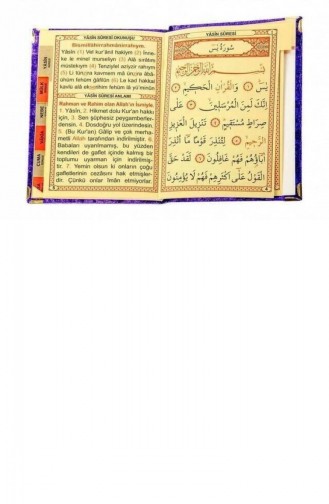 YÂSÎN SÛRESİ OKUNUŞU
Bismillâhirrahmânirrahîym.
Yâsîn (1) Vel kur'ânil hakîym (2) İnne
ke le minel murselîyn (3) Alâ sırâtım
müstekıym (4) Tenziylel aziyzir rahıym
(5) Li tünzira kavmem mâ ünzira âbâ-
ühüm fehüm gâfilûn (6) Le kad hakkal
kavlü alâ ekserihim fehüm lâ yü'minûn
YÂSÎN SÛRESİ ANLAMI
Rahman ve Rahim olan Allah'ın ismiyle,
1. Yâsîn, 2. Hikmet dolu Kur'an hakkı
için, 3. Sen şüphesiz peygamberler-
densin, 4. Dosdoğru yol üzerindesin.
5. (Bu Kur'an) Gâlip ve çok merha-
metli Allah tarafından indirilmiştir. 6.
Babaları uyarılmamış, bu yüzden
kendileri de gaflet içinde kalmış bir
toplumu uyarman için indirilmiş-
tir. 7. Yemin olsun ki onların çoğu
gafletlerinin cezâsını hak etmişler-
dir. Çünkü onlar îman etmiyorlar.
YÂSÎN SÛRESİ
سُورَةُ يٰسٓ
بِسْمِ اللّٰهِ الرَّحْمٰنِ الرَّحِيمِ
يٰسٓ ﴿١﴾ وَالْقُرْاٰنِ الْحَكِيمِ ﴿٢﴾
اِنَّكَ لَمِنَ الْمُرْسَلِينَ ﴿٣﴾ عَلٰى
صِرَاطٍ مُسْتَقِيمٍ ﴿٤﴾ تَنْزِيلَ الْعَزِيزِ
الرَّحِيمِ ﴿٥﴾ لِتُنْذِرَ قَوْمًا مَٓا اُنْذِرَ
اٰبَٓاؤُ۬هُمْ فَهُمْ غَافِلُونَ ﴿٦﴾ لَقَدْ حَقَّ
الْقَوْلُ عَلٰٓى اَكْثَرِهِمْ فَهُمْ لَا يُؤْمِنُونَ